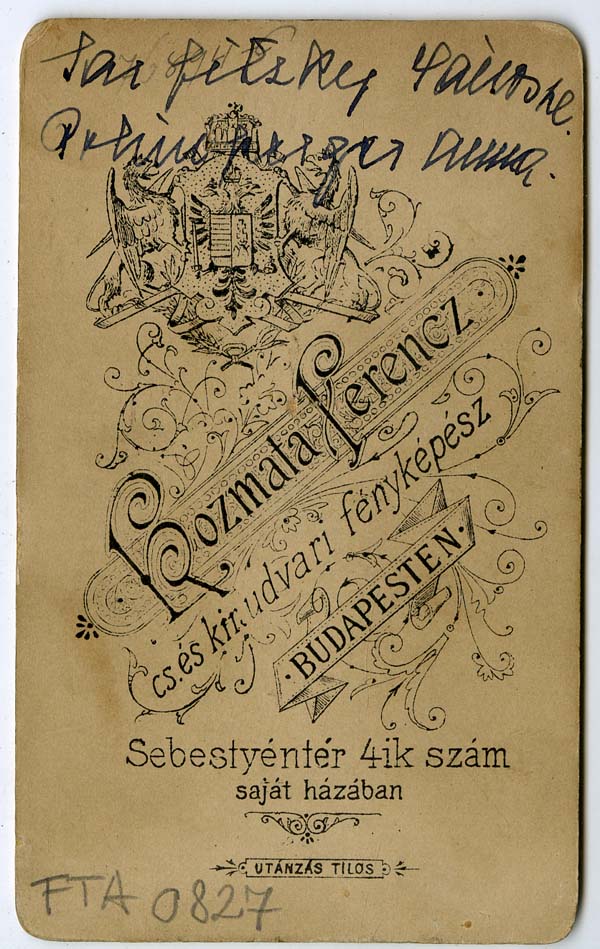 Anna.
Kozmata Ferencz
cs. és kir. udvari fényképész
· BUDAPESTEN ·
Sebestyéntér 4ik szám
saját házában
UTÁNZÁS TILOS
FTA 0827